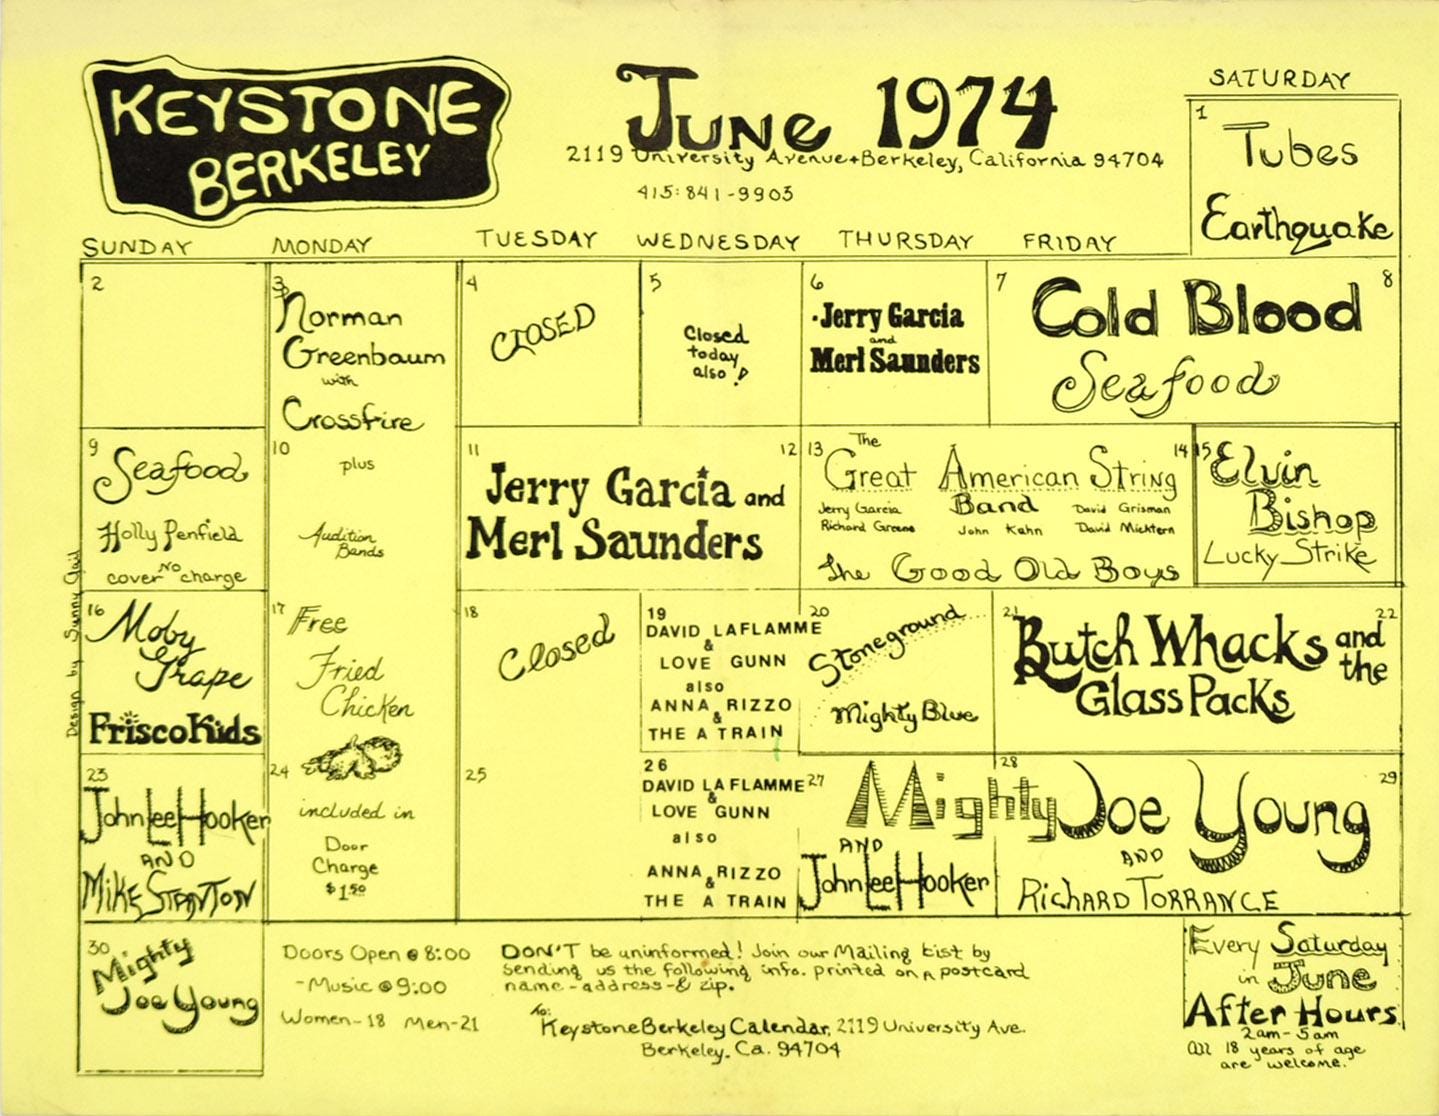 KEYSTONE
BERKELEY
June 1974
2119 University Avenue + Berkeley, California 94704
415: 841-9903
SATURDAY
1
Tubes
Earthquake
SUNDAY MONDAY TUESDAY WEDNESDAY THURSDAY FRIDAY
2
3
Norman
Greenbaum
with
Crossfire
4
CLOSED
5
Closed
today
also!
6
Jerry Garcia
and
Merl Saunders
7 8
Cold Blood
Seafood
9
Seafood
Holly Penfield
NO
cover charge
10
plus
Audition
Bands
11 12
Jerry Garcia and
Merl Saunders
13 14
The
Great American String
Band
Jerry Garcia David Grisman
Richard Greene John Kahn David Nicktern
The Good Old Boys
15
Elvin
Bishop
Lucky Strike
16
Moby
Grape
Frisco Kids
17
Free
Fried
Chicken
18
Closed
19
DAVID LAFLAMME
&
LOVE GUNN
also
ANNA RIZZO
&
THE A TRAIN
20
Stoneground
Mighty Blue
21 22
Butch Whacks and
the
Glass Packs
23
John Lee Hooker
AND
Mike Stanton
24
included in
Door
Charge
$1.50
25
26
DAVID LA FLAMME
&
LOVE GUNN
also
ANNA RIZZO
&
THE A TRAIN
27 28 29
Mighty Joe Young
AND
John Lee Hooker
AND
Richard Torrance
30
Mighty
Joe Young
Doors Open @ 8:00
- Music @ 9:00
Women-18 Men-21
DON'T be uninformed! Join our Mailing List by
sending us the following info. printed on a postcard
name-address-& zip.
To:
Keystone Berkeley Calendar, 2119 University Ave.
Berkeley, Ca. 94704
Every Saturday
in June
After Hours
2am-5am
All 18 years of age
are welcome.
Design by Sunny Gail